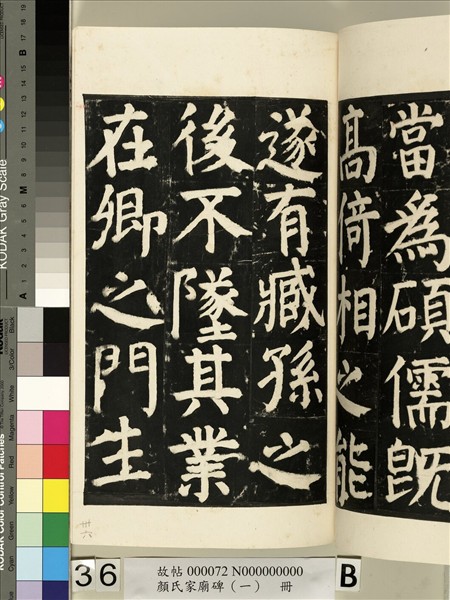 當為碩儒既
髙倚相之能
遂有臧孫之
後不墜其業
在卿之門生
卅六
36
故帖 000072 N000000000
顏氏家廟碑（一） 冊
B
KODAK Gray Scale
A 1 2 3 4 5 6 M 8 9 10 B
KODAK Color Control Patches
Cyan
Green
Yellow
Red
Magenta
White
3/Color
Black